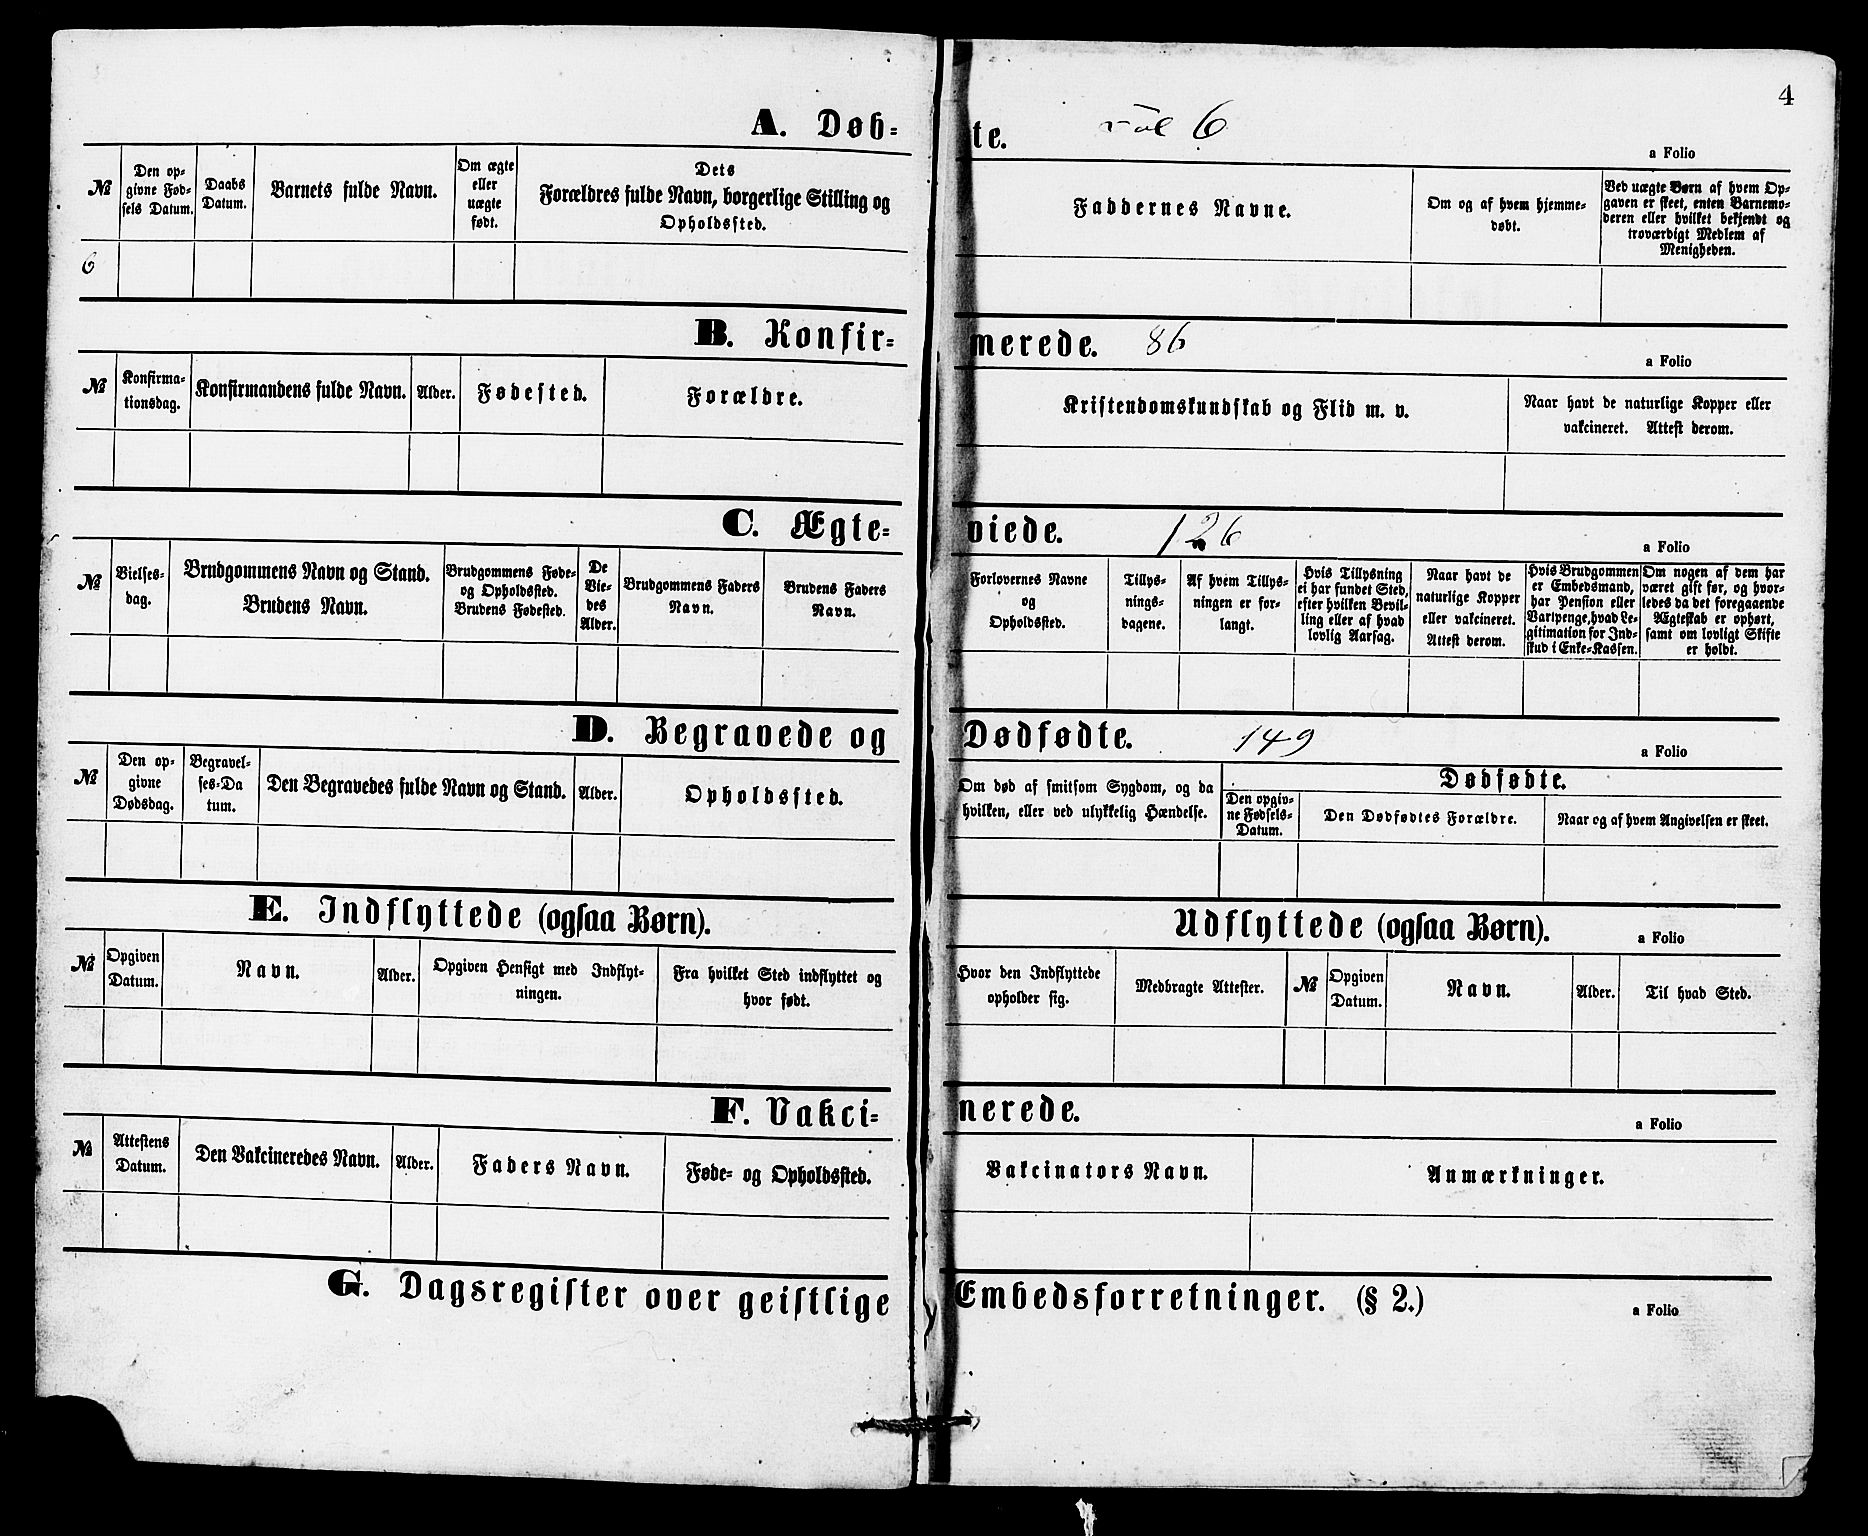 4
A. Døb=
te. 6
a Folio
№
Den op=
givne Fød=
sels Datum.
Daabs
Datum.
Barnets fulde Navn.
Om ægte
eller
uægte
født.
Dets
Forældres fulde Navn, borgerlige Stilling og
Opholdssted.
Faddernes Navne.
Om og af hvem hjemme=
døbt.
Ved uægte Børn af hvem Op=
gaven er skeet, enten Barnemo=
deren eller hvilket bekjendt og
troværdigt Medlem af
Menigheden.
6
B. Konfir=
merede. 86
a Folio
№
Konfirma=
tionsdag.
Konfirmandens fulde Navn.
Alder.
Fødested.
Forældre.
Kristendomskundskab og Flid m. v.
Naar havt de naturlige Kopper eller
vakcineret. Attest derom.
C. Ægte=
viede. 126
a Folio
№
Vielses=
dag.
Brudgommens Navn og Stand.
Brudens Navn.
Brudgommens Føde=
og Opholdssted.
Brudens Fødested.
De
Vie=
des
Alder.
Brudgommens Faders
Navn.
Brudens Faders
Navn.
Forlovernes Navne
og
Opholdssted.
Tillys=
nings=
dagene.
Af hvem Tillys=
ningen er for=
langt.
Hvis Tillysning
ei har fundet Sted,
efter hvilken Bevil=
ling eller af hvad
lovlig Aarsag.
Naar havt de
naturlige Kopper
eller vakcineret.
Attest derom.
Hvis Brudgommen
er Embedsmand,
har Pension eller
Vartpenge, hvad Le=
gitimation for Ind=
skud i Enke=Kassen.
Om nogen af dem har
været gift før, og hvor=
ledes da det foregaaende
Ægteskab er ophørt,
samt om lovligt Skifte
er holdt.
D. Begravede og
Dødfødte. 149
a Folio
№
Den op=
givne
Dødsdag.
Begravel=
ses=Da
tum.
Den Begravedes fulde Navn og Stand.
Alder.
Opholdssted.
Om død af smitsom Sygdom, og da
hvilken, eller ved ulykkelig Hændelse.
Dødfødte.
Den opgiv=
ne Fødsels=
Datum.
Den Dødfødtes Forældre.
Naar og af hvem Angivelsen er skeet.
E. Indflyttede (ogsaa Børn).
Udflyttede (ogsaa Børn).
a Folio
№
Opgiven
Datum.
Navn.
Alder.
Opgiven Hensigt med Indflyt=
ningen.
Fra hvilket Sted indflyttet og
hvor født.
Hvor den Indflyttede
opholder sig.
Medbragte Attester.
№
Opgiven
Datum.
Navn.
Alder.
Til hvad Sted.
F. Vakci=
nerede.
a Folio
№
Attestens
Datum.
Den Vakcineredes Navn.
Alder.
Faders Navn.
Føde= og Opholdssted.
Vakcinators Navn.
Anmærkninger.
G. Dagsregister over geistlige
Embedsforretninger. (§ 2.)
a Folio